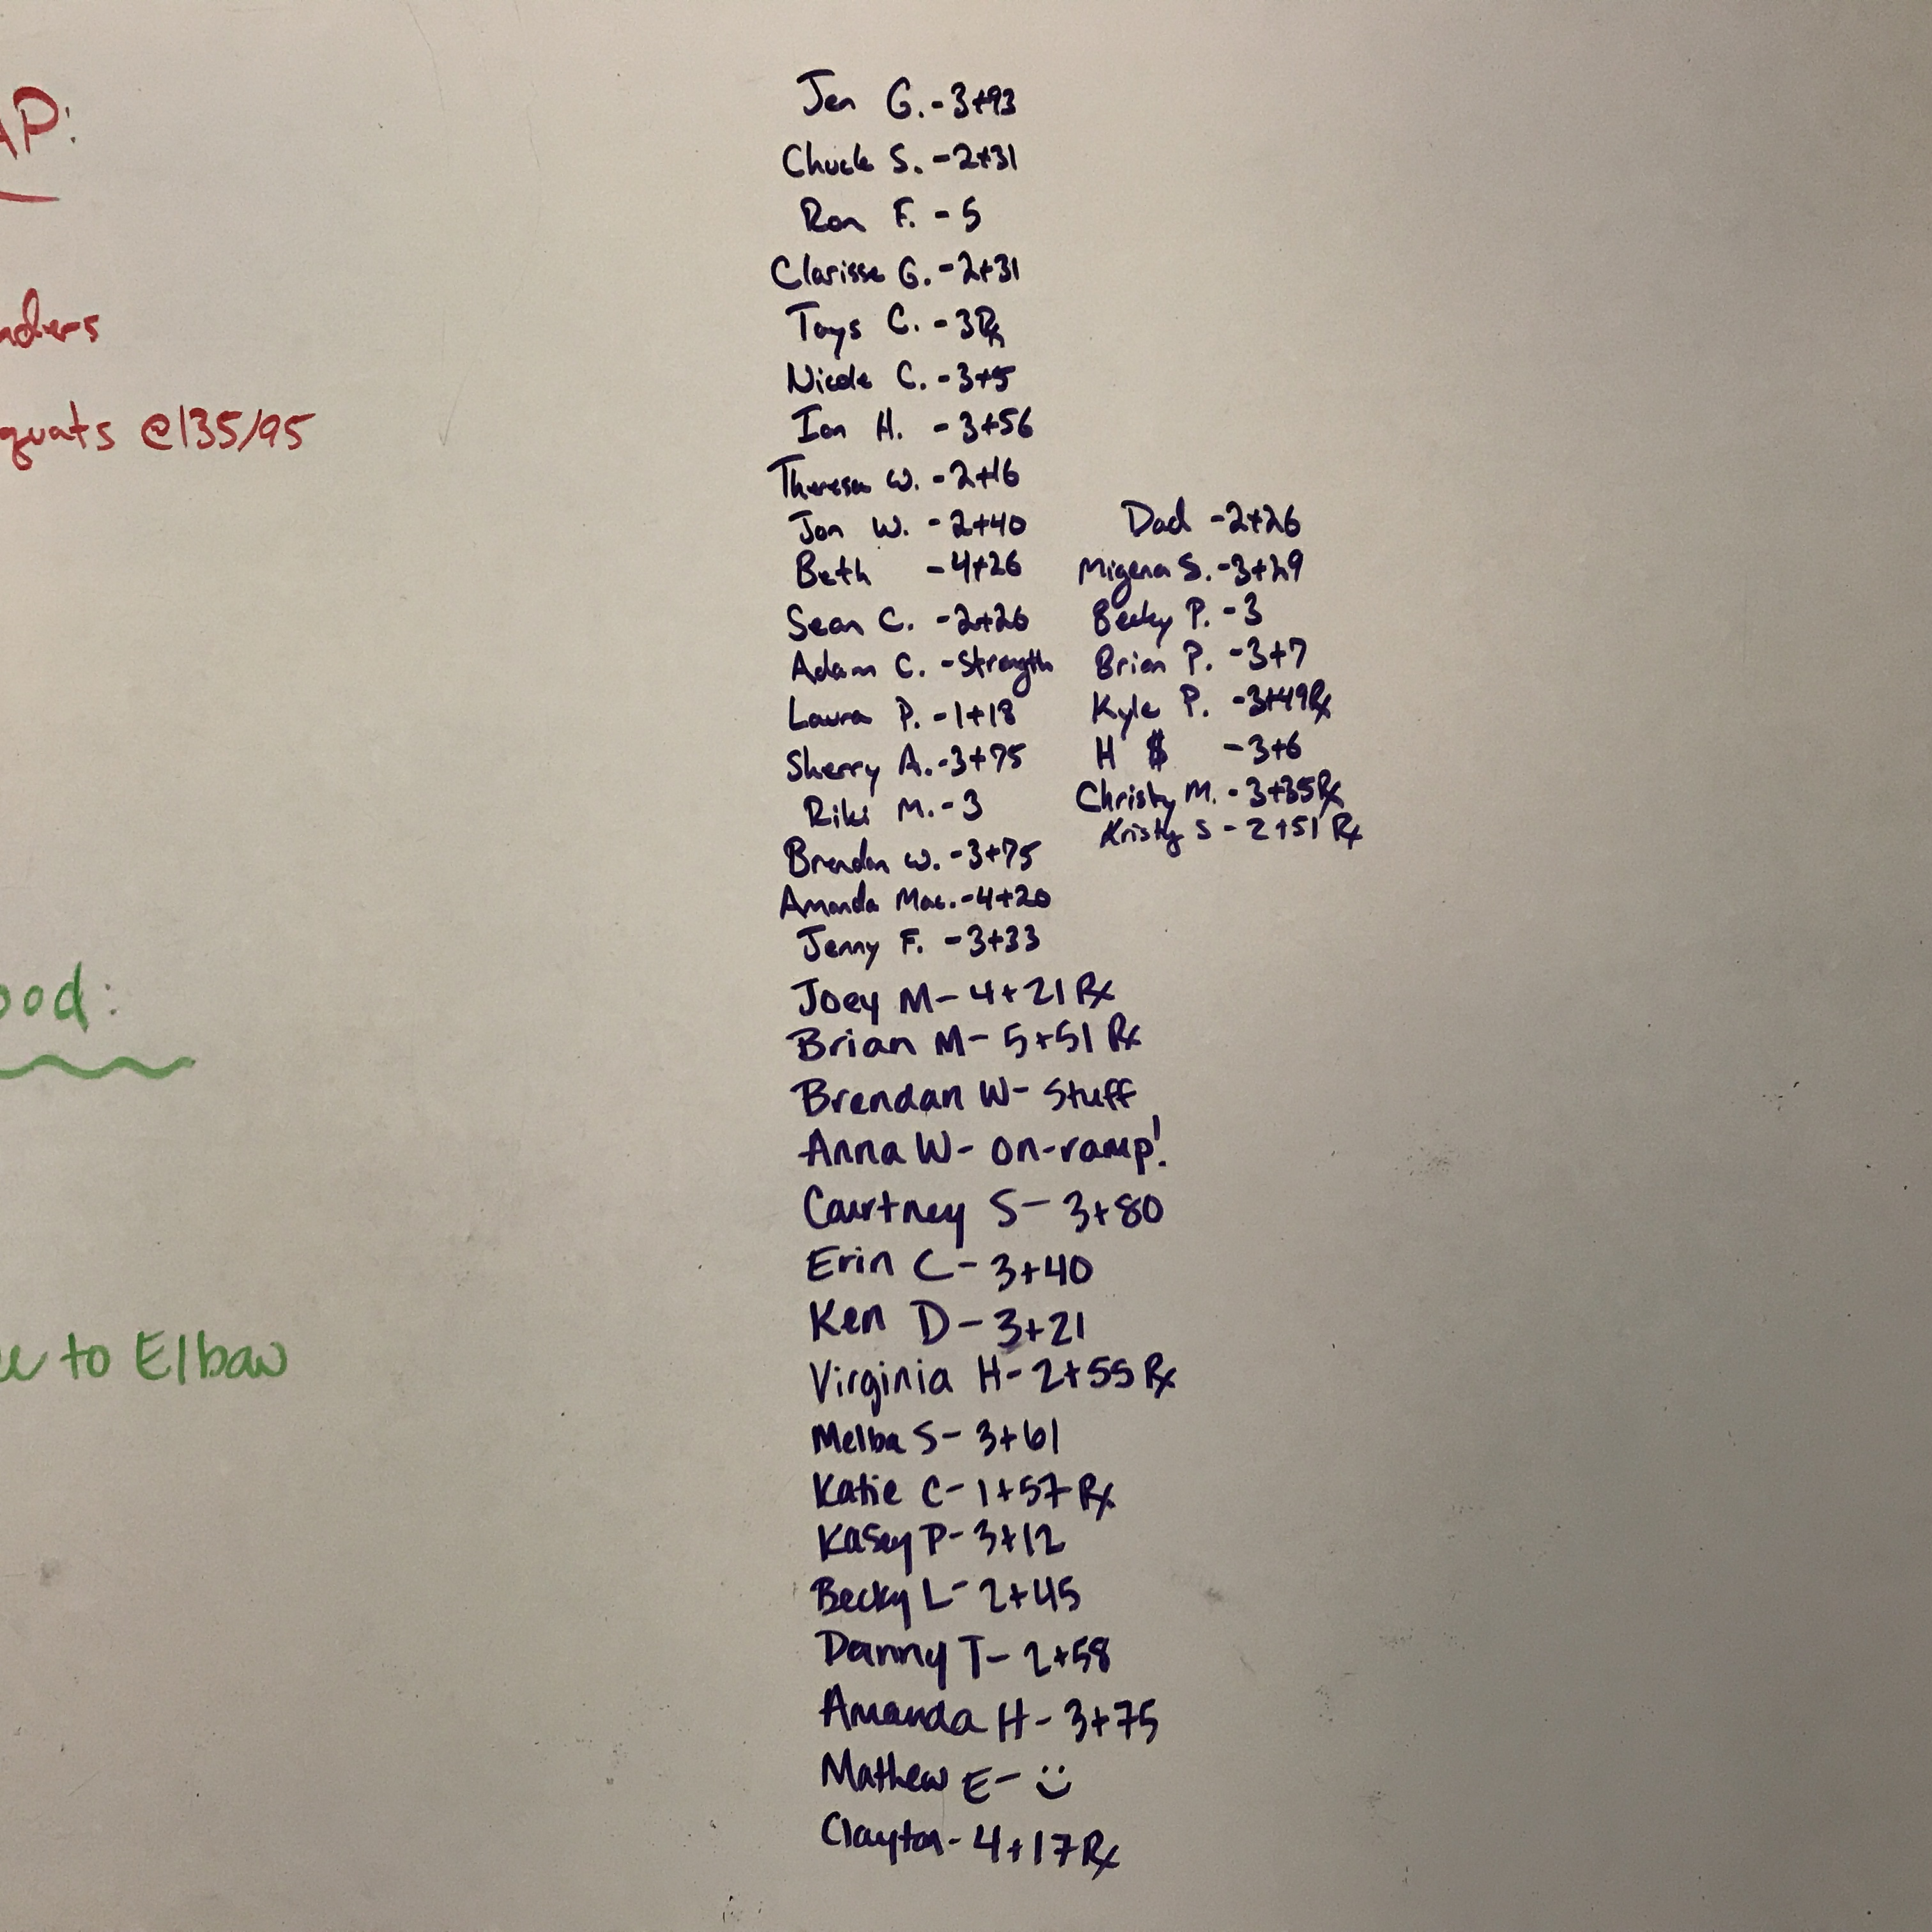 AP:
squats @135/95
ood:
to Elbow
Jen G. - 3+93
Chuck S. - 2+31
Ron F. - 5
Clarissa G. - 2+31
Tays C. - 3Rx
Nicole C. - 3+5
Ian H. - 3+56
Theresa W. - 2+16
Jon W. - 2+40
Beth - 4+26
Sean C. - 2+26
Adam C. - Strength
Laura P. - 1+18
Sherry A. - 3+75
Riki M. - 3
Brendan W. - 3+75
Amanda Mac. - 4+20
Jenny F. - 3+33
Joey M - 4+21 Rx
Brian M - 5+51 Rx
Brendan W - Stuff
Anna W - on-ramp!
Courtney S - 3+80
Erin C - 3+40
Ken D - 3+21
Virginia H - 2+55 Rx
Melba S - 3+61
Katie C - 1+57 Rx
Kasey P - 3+12
Becky L - 2+45
Danny T - 2+58
Amanda H - 3+75
Mathew E - :)
Clayton - 4+17 Rx
Dad - 2+26
Migena S. - 3+29
Becky P. - 3
Brian P. - 3+7
Kyle P. - 3+49Rx
H $ - 3+6
Christy M. - 3+35Rx
Kristy S - 2+51 Rx